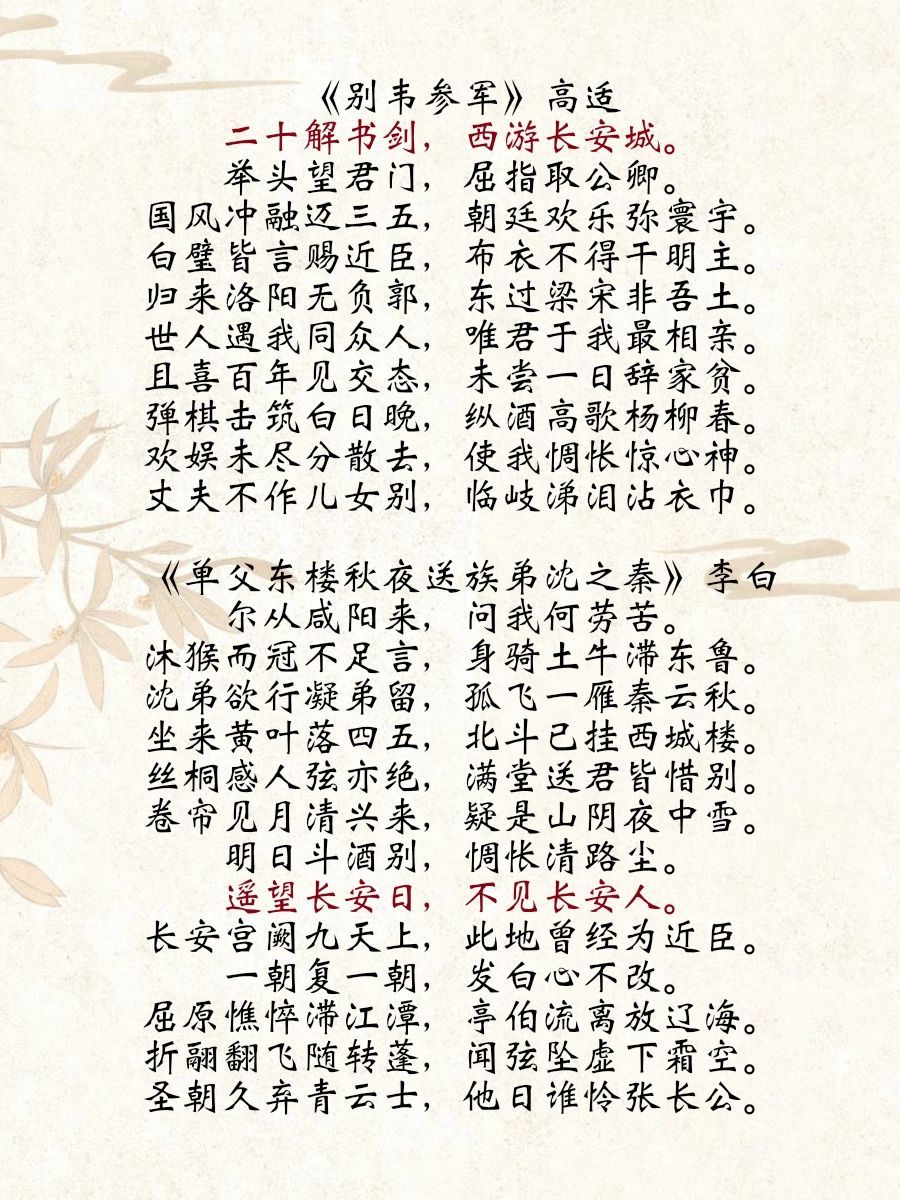 《别韦参军》高适
二十解书剑，西游长安城。
举头望君门，屈指取公卿。
国风冲融迈三五，朝廷欢乐弥寰宇。
白璧皆言赐近臣，布衣不得干明主。
归来洛阳无负郭，东过梁宋非吾土。
世人遇我同众人，唯君于我最相亲。
且喜百年见交态，未尝一日辞家贫。
弹棋击筑白日晚，纵酒高歌杨柳春。
欢娱未尽分散去，使我惆怅惊心神。
丈夫不作儿女别，临岐涕泪沾衣巾。
《单父东楼秋夜送族弟沈之秦》李白
尔从咸阳来，问我何劳苦。
沐猴而冠不足言，身骑土牛滞东鲁。
沈弟欲行凝弟留，孤飞一雁秦云秋。
坐来黄叶落四五，北斗已挂西城楼。
丝桐感人弦亦绝，满堂送君皆惜别。
卷帘见月清兴来，疑是山阴夜中雪。
明日斗酒别，惆怅清路尘。
遥望长安日，不见长安人。
长安宫阙九天上，此地曾经为近臣。
一朝复一朝，发白心不改。
屈原憔悴滞江潭，亭伯流离放辽海。
折翮翻飞随转蓬，闻弦坠虚下霜空。
圣朝久弃青云士，他日谁怜张长公。